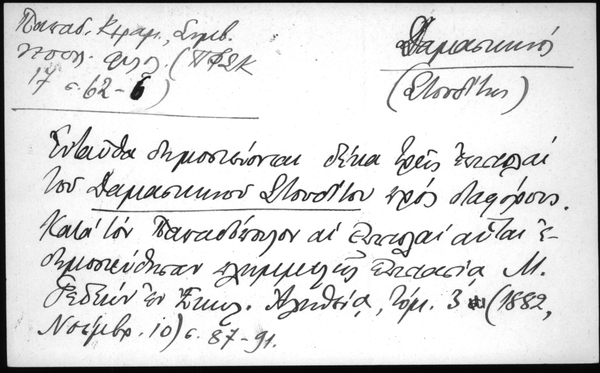 Παπαδ. Κεραμ., Συμβ.
ιστορ. φιλολ. (ΠΦΣΚ
17 σ. 62-6)
Δαμασκηνός
(Στουδίτης)
Ἐνταῦθα δημοσιεύονται δέκα τρεῖς ἐπιστολαὶ
τοῦ Δαμασκηνοῦ Στουδίτου πρὸς διαφόρους.
Κατὰ τὸν Παπαδόπουλον αἱ ἐπιστολαὶ αὗται ἐ-
δημοσιεύθησαν πλημμελῶς ἐπιστασίᾳ Μ.
Γεδεών ἐν Ἐκκλ. Ἀληθείᾳ, τόμ. 3 (1882,
Νοέμβρ. 10) σ. 87-91.